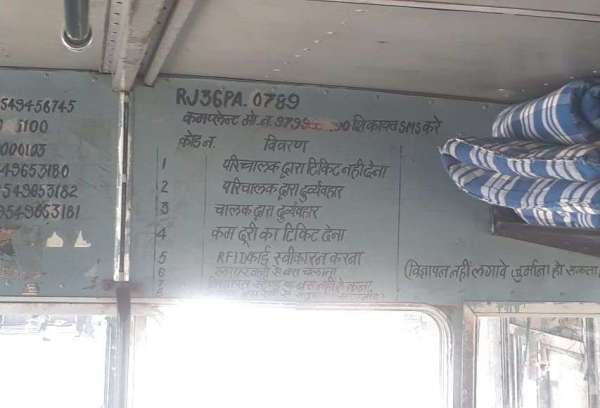 549456745
5100
000103
49653180
9549653182
9549653181
RJ36PA.0789
कमप्लेन्ट मो.न. शिकायत SMS करे
कोड न. विवरण
1 परिचालक द्वारा टिकिट नही देना
2 परिचालक द्वारा दुर्व्यवहार
3 चालक द्वारा दुर्व्यवहार
4 कम दूरी का टिकिट देना
5 RFID कार्ड स्वीकार न करना
6
7
(विज्ञापन नही लगावे जुर्माना हो सकता